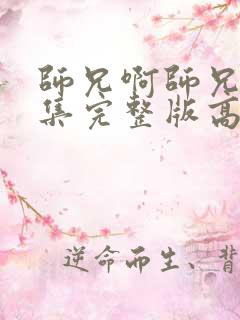 師兄啊師兄
集完整版高
逆命而生、背